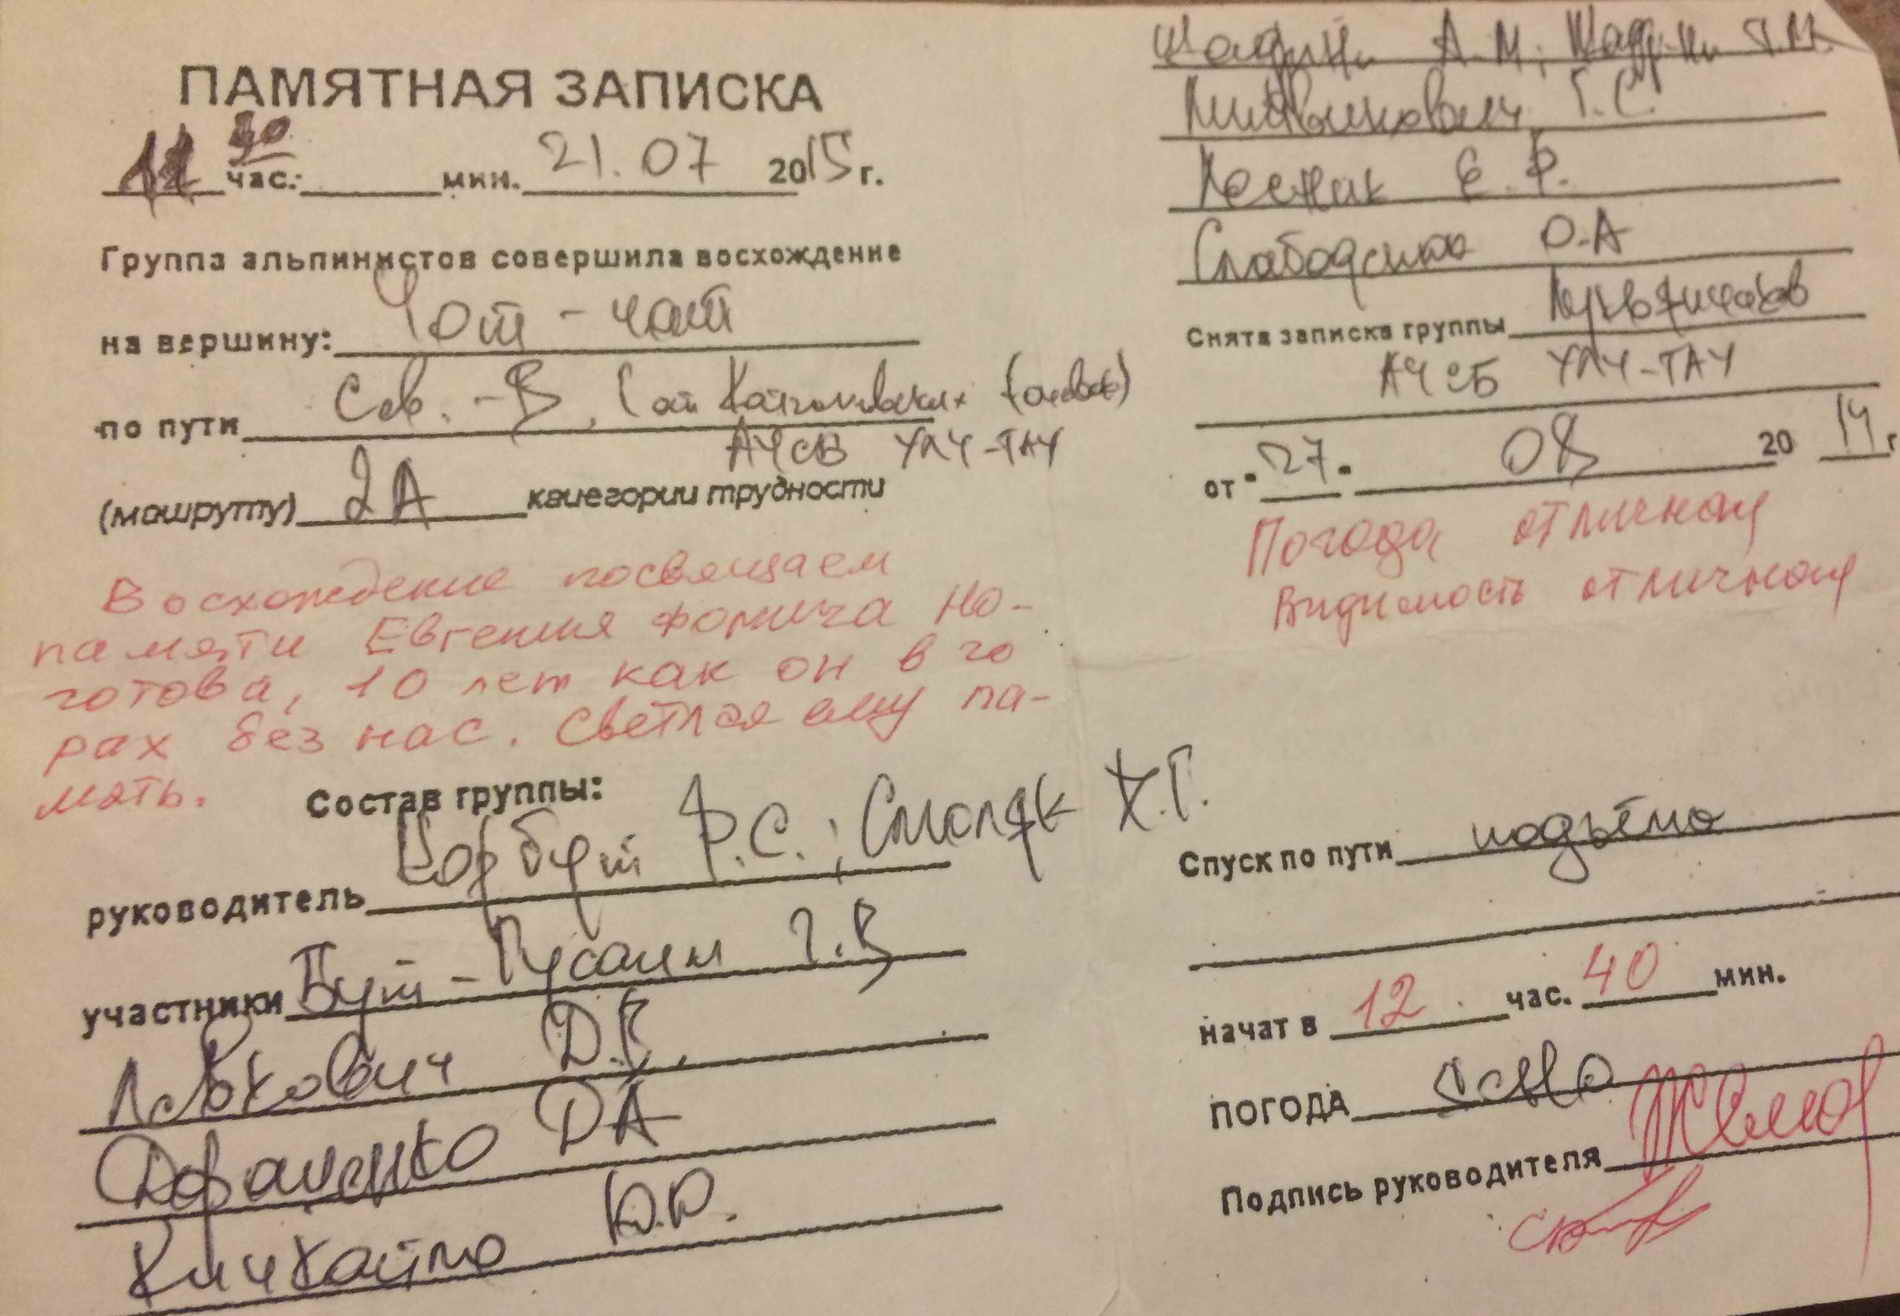 ПАМЯТНАЯ ЗАПИСКА
час. 30 мин. 21.07 2015 г.
Группа альпинистов совершила восхождение
на вершину: Чот-чат
по пути Сев.-В,
АЧСВ УЛУ-ТАУ
(маршруту) 2А категории трудности
Восхождение посвящаем
памяти Евгения Фомича Но-
готова, 10 лет как он в го
рах без нас. Светлая ему па-
мять.
Состав группы:
руководитель Корбут Ф.С.; Смоляк Х.Г.
участники Бут-Гусаим Г.В
Левкович Д.В.
Доращенко ДА
Кличкайло Ю.Ю.
Шадрин А.М; Шадрин Т.М.
Г.С.
Лесняк Е.Р.
О.А
Снята записка группы
АУСБ УЛУ-ТАУ
от "27" 08 2014 г
Погода отличная
Видимость отличная
Спуск по пути подъёма
начат в 12 час. 40 мин.
ПОГОДА ясно
Подпись руководителя